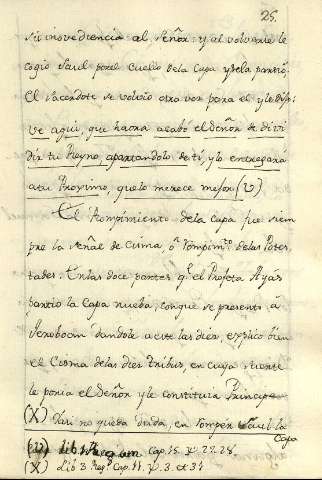 25.
su inovediencia al Señor: y al volverse le
cogio Saul por el Cuello de la Capa y se la partio.
El sacerdote se volvio otra vez para el y le dijo:
Ve aqui, que haora acabó el Señor de divi
dir tu Reyno, apartandolo de ti, y lo entregará
a tu Proximo, que lo merece mejor (V).
El Rompimiento de la Capa fue siem
pre la Señal de Cisma, o Rompim.to de las Potes
tades. En las doce partes q.e el Profeta Ayas
partio la Capa nueba, con que se presentó á
Jeroboam dandole a este las diez, explicó bien
el Cisma de las diez tribus, en cuya suerte
le ponia el Señor y le constituia Principe
(X) Asi no queba duda, en romper Saul la
Capa
(V) Lib. 1. Regum Cap. 15. V. 27. 28.
(X) Lib 3. Reg. Cap. 11. V. 30. et 31